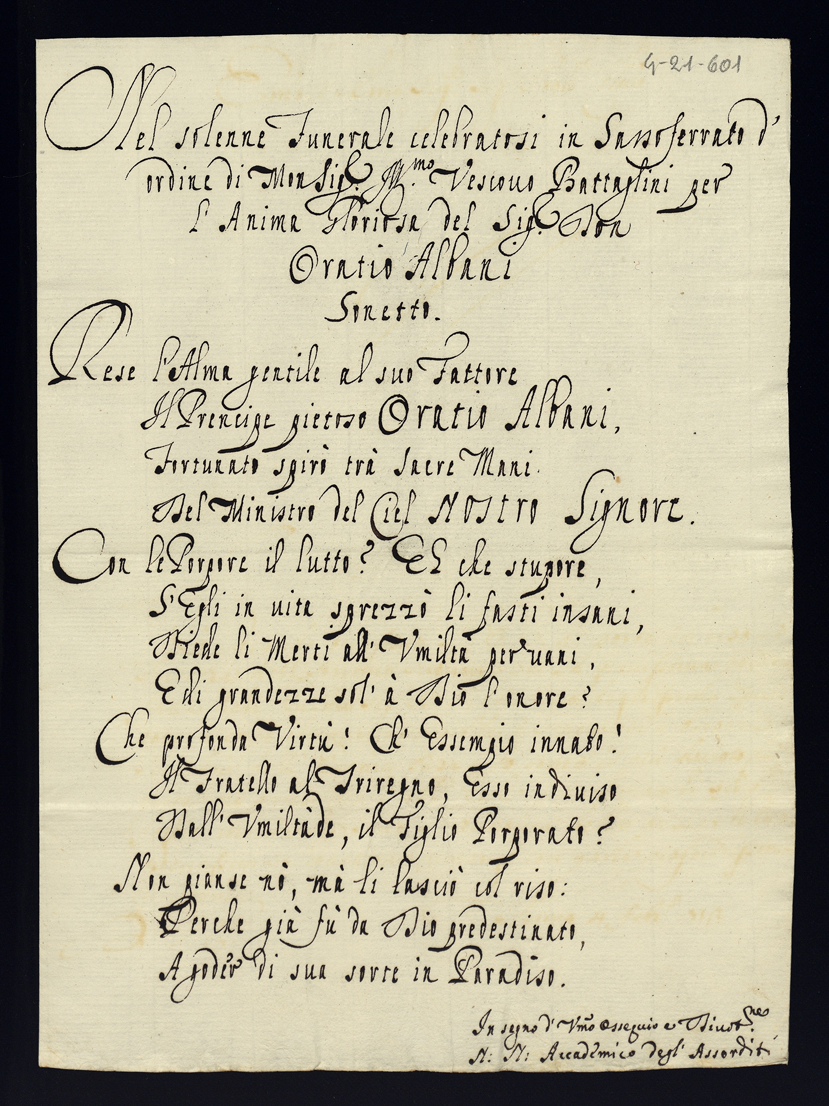 4-21-601
Nel solenne Funerale celebratosi in Sassoferrato d'
ordine di Monsig.r Ill.mo Vescouo Battaglini per
l'Anima Gloriosa del Sig.r Don
Oratio Albani
Sonetto.
Rese l'Alma gentile al suo Fattore
Il Prencipe pietoso Oratio Albani,
Fortunato spirò trà sacre Mani
Del Ministro del Ciel NOStro Signore.
Con le Porpore il lutto? Eh che stupore,
S'Egli in uita sprezzò li fasti insani,
Diede li Merti all' Vmiltà per uani,
E di grandezze sol' à Dio l'onore?
Che profonda Virtù! Ch' Essempio innato!
Il Fratello al Triregno, Esso indiuiso
Dall' Vmiltàde, il Figlio Porporato?
Non pianse nò, mà li lasciò col riso:
Perche già fù da Dio predestinato,
A goder di sua sorte in Paradiso.
In segno d'Vmo Ossequio e Diuot.ne
N: N: Accadèmico degl' Assorditi